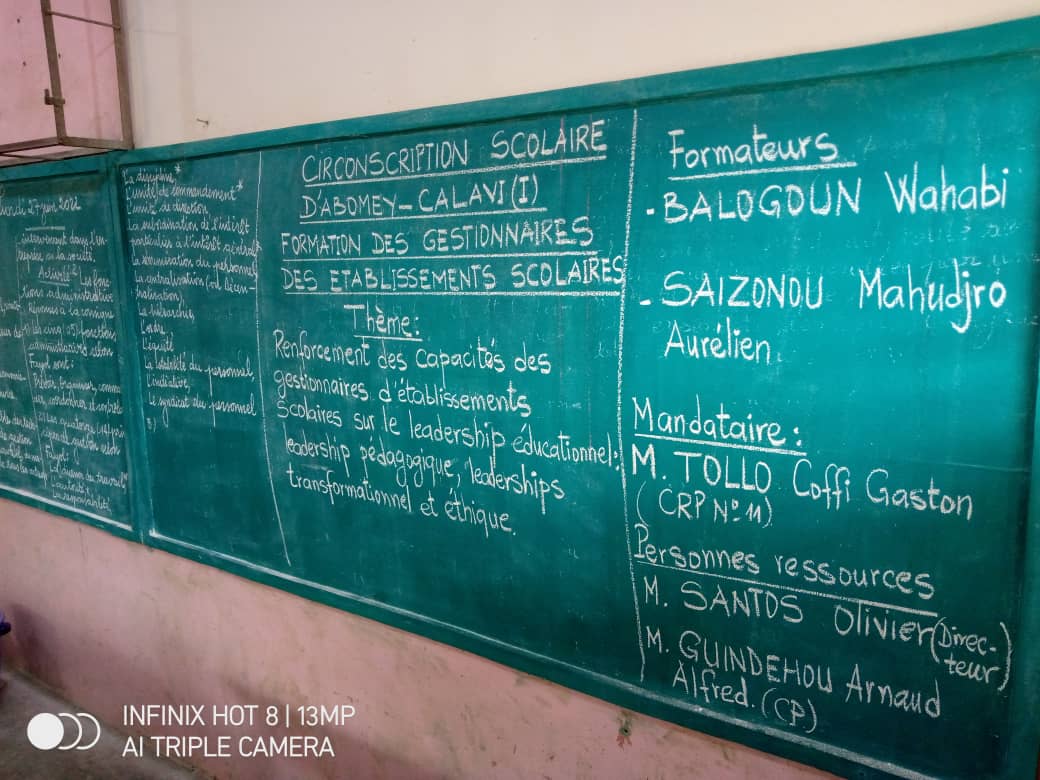 Lundi 27 juin 2022
intervenant dans l'en-
treprise ou la société.
Activité 2 Les fonc-
tions administratives
Réponses à la consigne
1) Les cinq (05) fonctions
administratives selon
Fayol sont:
Prévoir, organiser, comman-
der, coordonner et contrôler
Fayol:
La division du travail*
L'autorité
La responsabilité
La discipline*
L'unité de commandement*
L'unité de direction
La subordination de l'intérêt
particulier à l'intérêt général*
La rémunération du personnel
La centralisation (ou décen-
tralisation)
La hiérarchie,
L'ordre
L'équité
La stabilité du personnel,
L'initiative,
Le syndicat du personnel
CIRCONSCRIPTION SCOLAIRE
D'ABOMEY-CALAVI (I)
FORMATION DES GESTIONNAIRES
DES ETABLISSEMENTS SCOLAIRES
Thème:
Renforcement des capacités des
gestionnaires d'établissements
scolaires sur le leadership éducationnel,
leadership pédagogique, leaderships
transformationnel et éthique.
Formateurs
- BALOGOUN Wahabi
- SAIZONOU Mahudjro
Aurélien
Mandataire:
M. TOLLO Coffi Gaston
(CRP N° 11)
Personnes ressources
M. SANTOS Olivier (Direc-
teur)
M. GUINDEHOU Arnaud
Alfred. (CP)
INFINIX HOT 8 | 13MP
AI TRIPLE CAMERA